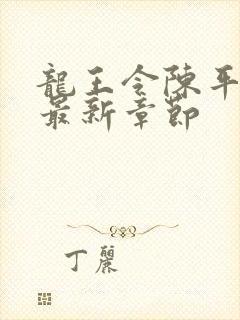 龍王令陳平
最新章節
丁麗